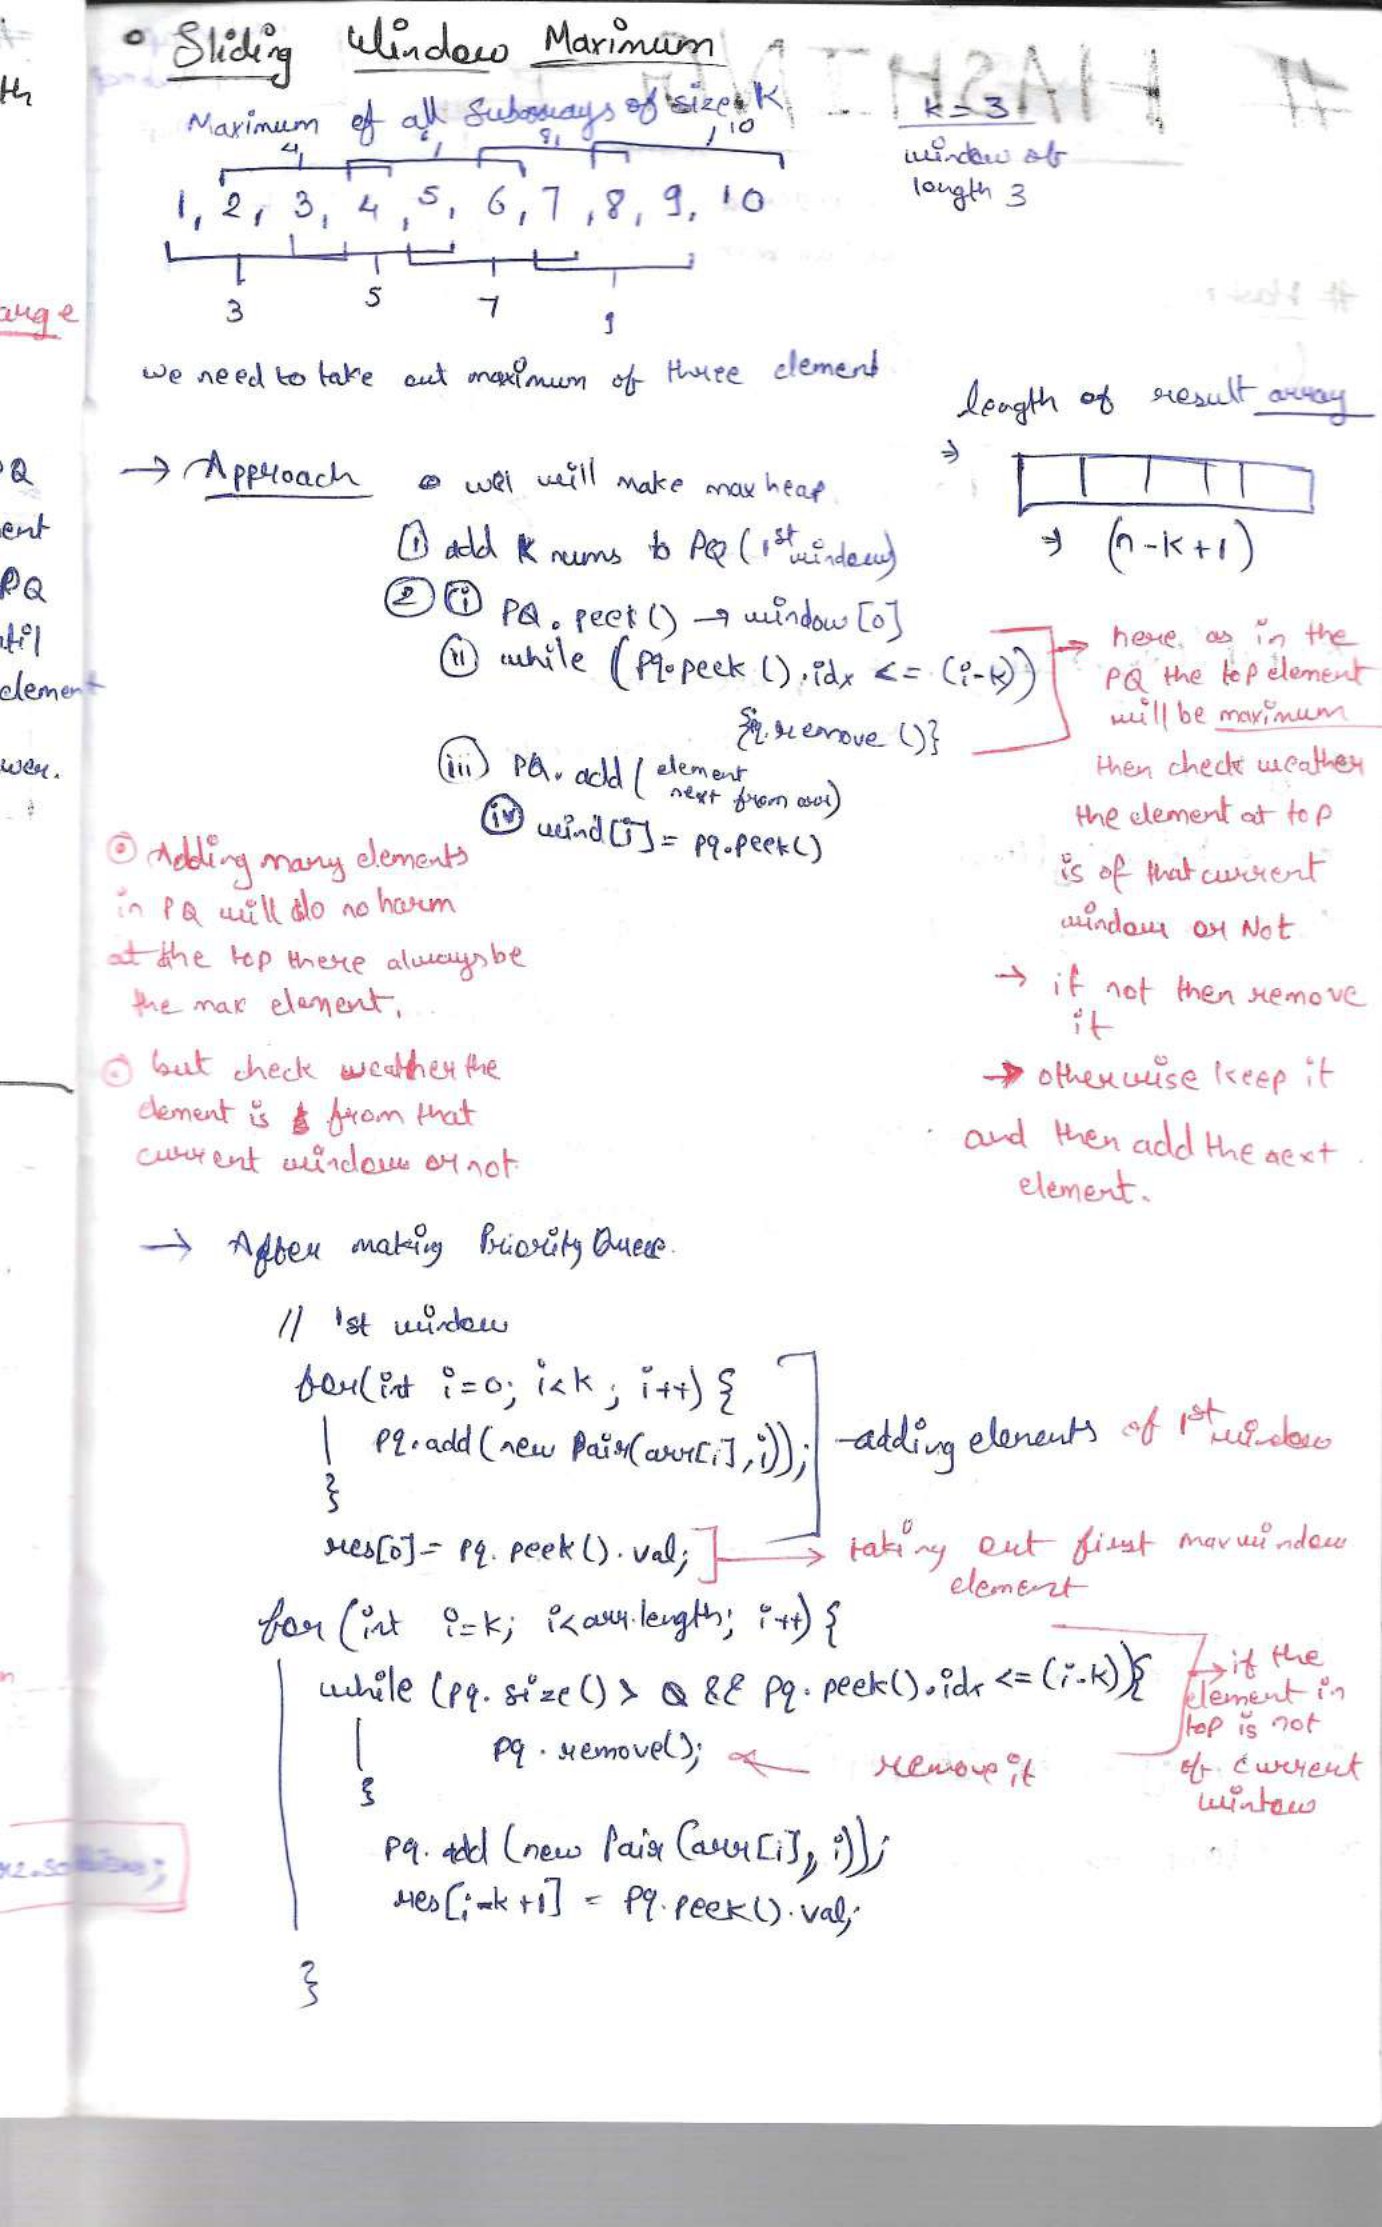 • Sliding Window Maximum
Maximum of all Subarrays of size K
K = 3
window of
length 3
4, 6, 8, 10
1, 2, 3, 4, 5, 6, 7, 8, 9, 10
3 5 7 9
we need to take out maximum of three element
length of result array
⇒
⇒ (n-K+1)
→ Approach • we will make max heap.
① add K nums to PQ (1st window)
② ⓘ PQ.peek() → window[0]
ⓘⓘ while (pq.peek().idx <= (i-k))
{pq.remove()}
(iii) PQ.add(element
next from arr)
(iv) wind[i] = pq.peek()
→ here, as in the
PQ the top element
will be maximum
then check weather
the element at top
is of that current
window or Not
→ if not then remove
it
→ otherwise keep it
and then add the next
element.
⊙ Adding many elements
in PQ will do no harm
at the top there always be
the max element.
⊙ but check weather the
element is from that
current window or not.
→ After making Priority Queue.
// 1st window
for(int i=0; i<k; i++) {
pq.add(new Pair(arr[i], i));
}
adding elements of 1st window
res[0] = pq.peek().val;
→ taking out first max window
element
for (int i=k; i<arr.length; i++) {
while (pq.size() > 0 && pq.peek().idx <= (i-k)){
pq.remove(); ← remove it
}
→ if the
element in
top is not
of current
wintow
pq.add (new Pair(arr[i], i));
res[i-k+1] = pq.peek().val;
}
th
ange
PQ
ent
PQ
til
element
wer.
# HASHING